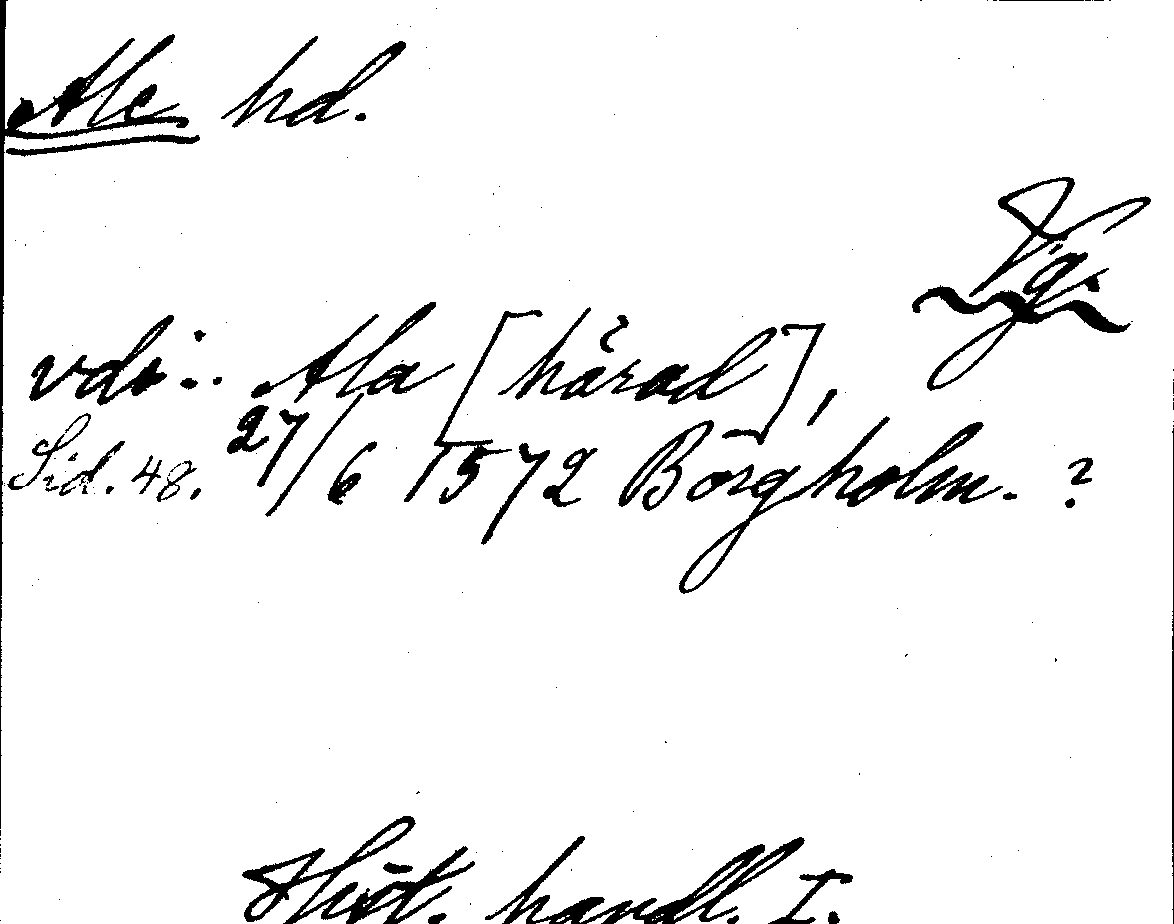 Ale hd.
Vg.
vds: Ala [härad],
Sid. 48. 27/6 1572 Borgholm. ?
Hist. handl. I.